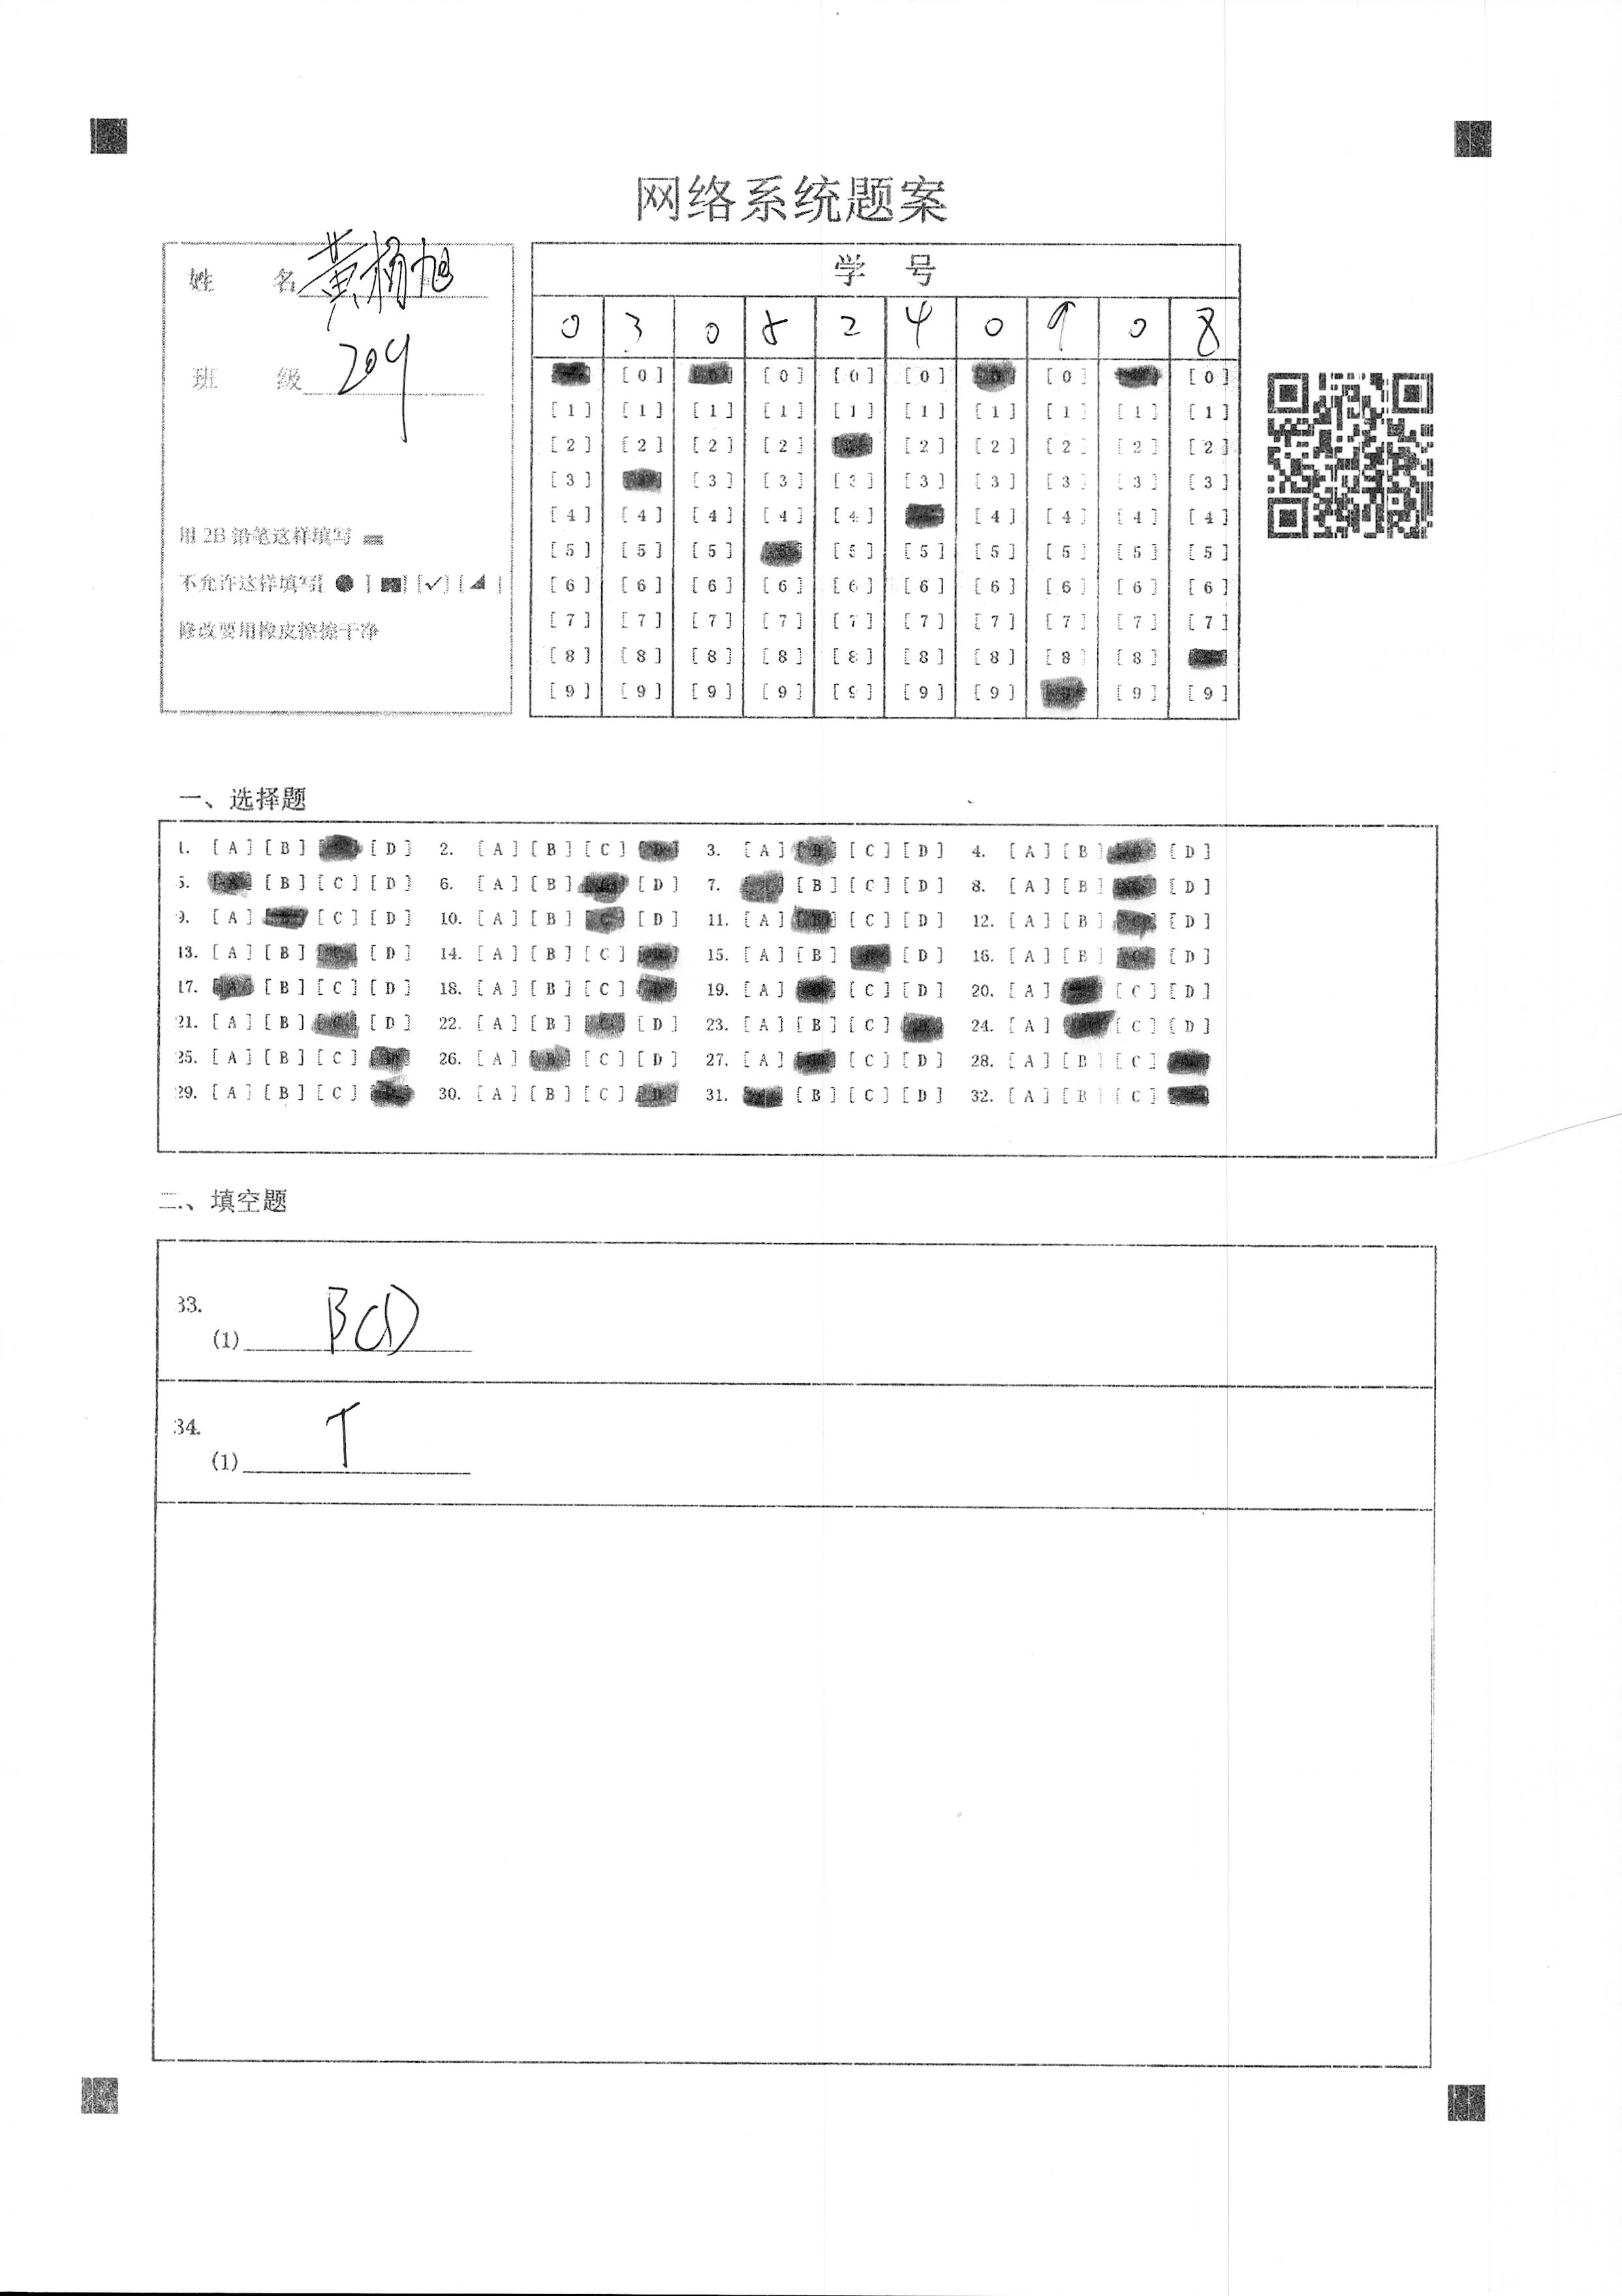 网络系统题案
姓 名 黄杨旭
班 级 204
用 2B 铅笔这样填写
不允许这样填写[ ● ] [■] [✓] [◢ ]
修改要用橡皮擦擦干净
学 号
0 3 0 5 2 4 0 9 0 8
[0] [0] [0] [0] [0] [0]
[1] [1] [1] [1] [1] [1] [1] [1] [1] [1]
[2] [2] [2] [2] [2] [2] [2] [2] [2]
[3] [3] [3] [3] [3] [3] [3] [3] [3]
[4] [4] [4] [4] [4] [4] [4] [4] [4]
[5] [5] [5] [5] [5] [5] [5] [5] [5]
[6] [6] [6] [6] [6] [6] [6] [6] [6] [6]
[7] [7] [7] [7] [7] [7] [7] [7] [7] [7]
[8] [8] [8] [8] [8] [8] [8] [8] [8]
[9] [9] [9] [9] [9] [9] [9] [9] [9]
一、选择题
1. [A] [B] [D] 2. [A] [B] [C] 3. [A] [C] [D] 4. [A] [B] [D]
5. [B] [C] [D] 6. [A] [B] [D] 7. [B] [C] [D] 8. [A] [B] [D]
9. [A] [C] [D] 10. [A] [B] [C] [D] 11. [A] [C] [D] 12. [A] [B] [D]
13. [A] [B] [D] 14. [A] [B] [C] 15. [A] [B] [D] 16. [A] [B] [C] [D]
17. [A] [B] [C] [D] 18. [A] [B] [C] 19. [A] [C] [D] 20. [A] [C] [D]
21. [A] [B] [C] [D] 22. [A] [B] [C] [D] 23. [A] [B] [C] 24. [A] [C] [D]
25. [A] [B] [C] 26. [A] [B] [C] [D] 27. [A] [C] [D] 28. [A] [B] [C]
29. [A] [B] [C] 30. [A] [B] [C] [D] 31. [B] [C] [D] 32. [A] [B] [C]
二、填空题
33.
(1) BCD
34.
(1) T